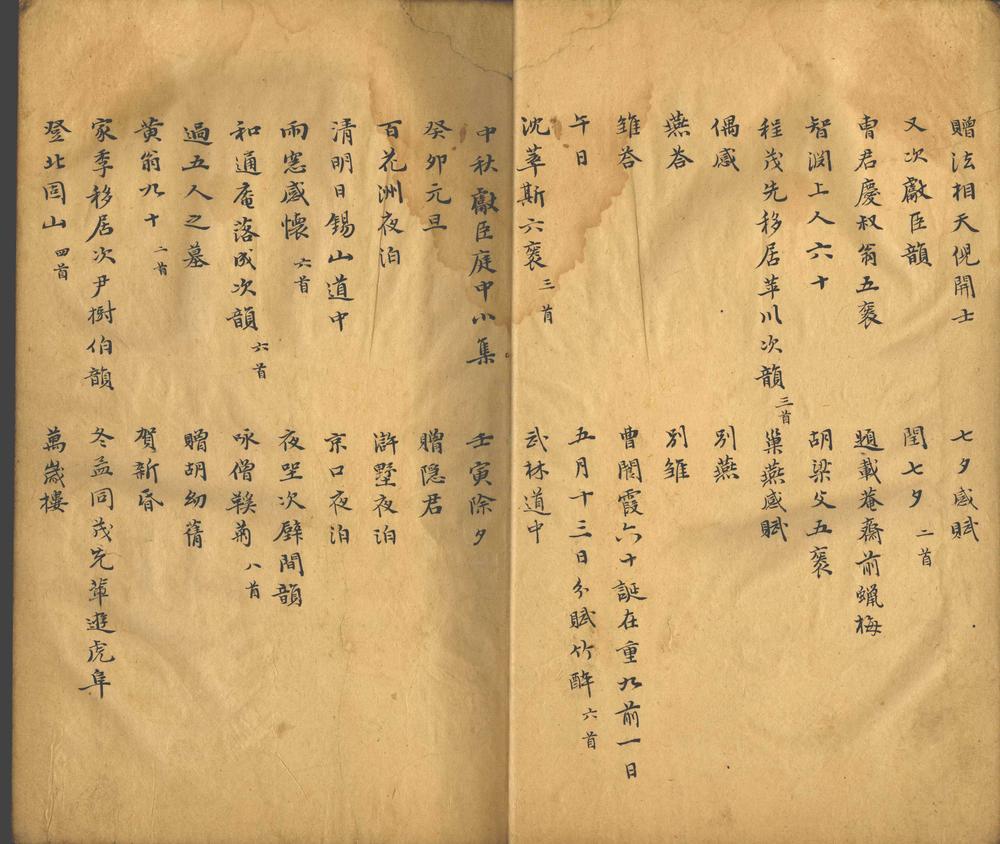 贈法相天倪開士
七夕感賦
又次獻臣韻
閏七夕 二首
曹君慶叔翁五褒
題載菴齋前蠟梅
智淵上人六十
胡梁父五褒
程茂先移居苹川次韻 三首
巢燕感賦
偶感
別燕
燕荅
別雏
雏荅
曹閬霞六十誕在重九前一日
午日
五月十三日分賦竹醉 六首
沈萃斯六褒 三首
武林道中
中秋獻臣庭中小集
壬寅除夕
癸卯元旦
贈隐君
百花洲夜泊
滸墅夜泊
清明日錫山道中
京口夜泊
雨窓感懷 六首
夜坐次壁間韻
和通菴落成次韻 六首
咏僧鞵菊 八首
過五人之墓
贈胡幼蒨
黄翁九十 二首
賀新昏
家季移居次尹樹伯韻
冬孟同茂先輩遊虎阜
登北固山 四首
萬歲樓